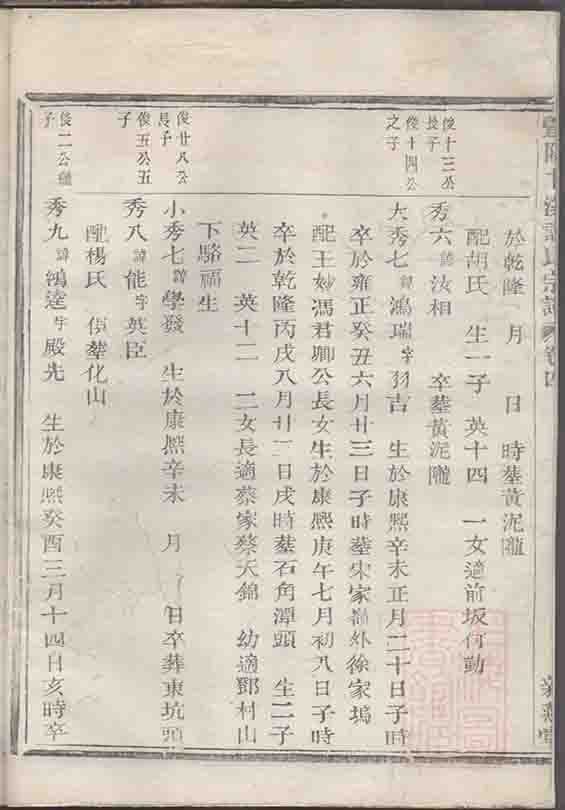 於乾隆 月 日 時塟黃泥隴
配胡氏 生一子 英十四 一女適前坂何勤
俊十三公
長子
秀六 諱 汝相 卒塟黃泥隴
俊十四公
之子
大秀七 諱 鴻瑞 字 羽吉 生於康熙辛未正月二十日子時
卒於雍正癸丑六月廿三日子時塟宋家嶺外徐家塢
配王妙馮君卿公長女生於康熙庚午七月初八日子時
卒於乾隆丙戌八月廿二日戌時塟石角潭頭 生二子
英二 英十二 二女長適蔡家蔡天錦 幼適鄧村山
下駱福生
俊廿八公
長子
小秀七 諱 學發 生於康熙辛未 月 日卒葬東坑頭
俊五公五
子
秀八 諱 能 字 英臣
配楊氏 俱塟化山
俊二公繼
子
秀九 諱 鴻逵 字 殿先 生於康熙癸酉三月十四日亥時卒